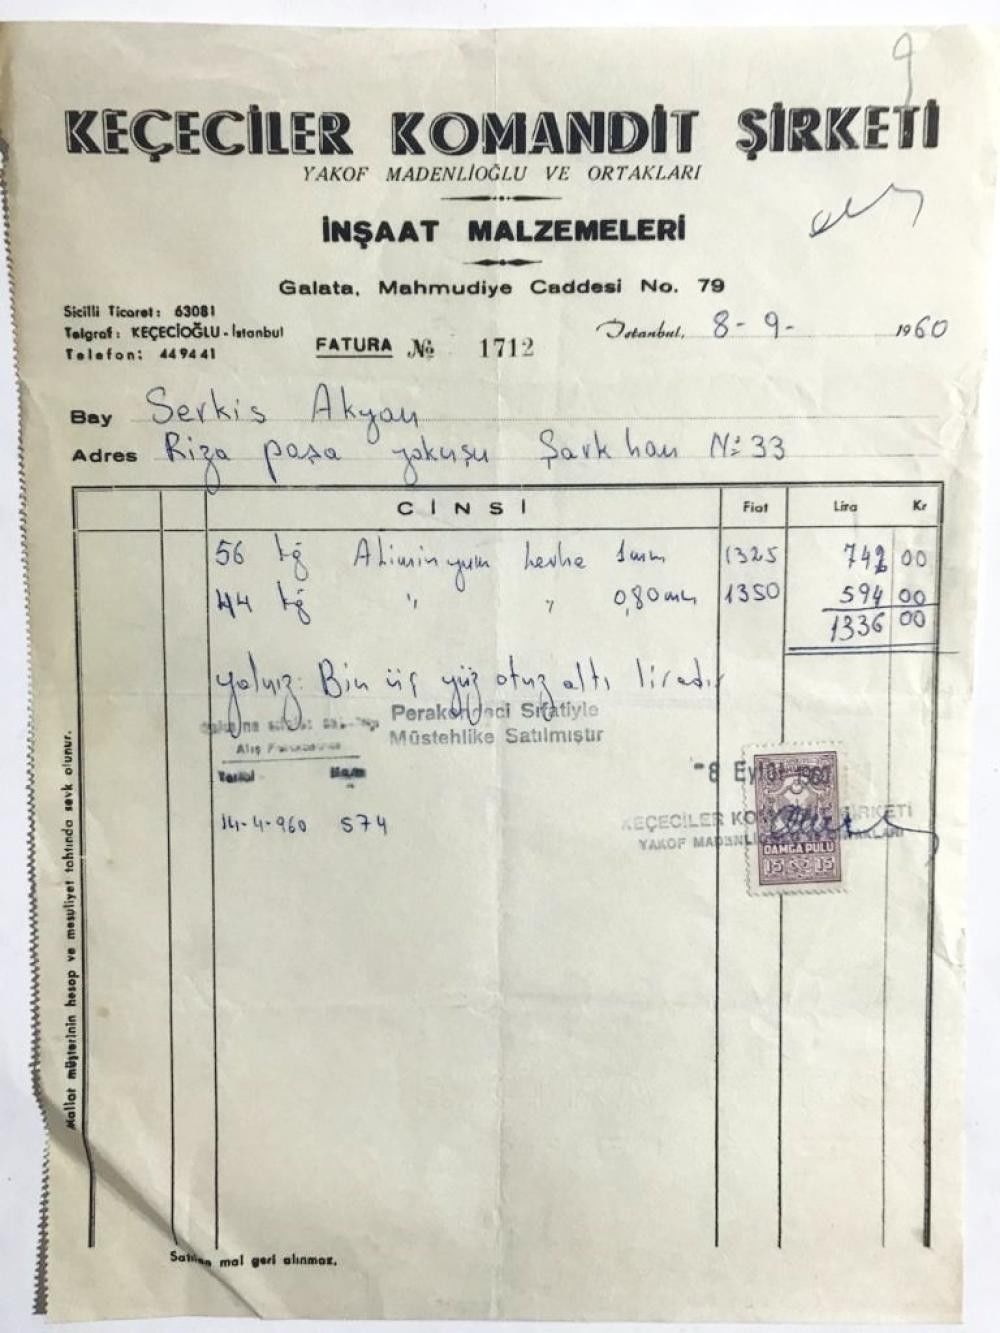 9
KEÇECİLER KOMANDİT ŞİRKETİ
YAKOF MADENLİOĞLU VE ORTAKLARI
İNŞAAT MALZEMELERİ
Galata, Mahmudiye Caddesi No. 79
Sicilli Ticaret: 63081
Telgraf: KEÇECİOĞLU - İstanbul
Telefon: 449441
FATURA № 1712
İstanbul, 8-9- 1960
Bay Serkis Akyan
Adres Riza paşa yokuşu Şark han N: 33
CİNSİ Fiat Lira Kr
56 kg Aliminyum levha 1mm 1325 742 00
44 kg " " 0,80mm 1350 594 00
1336 00
yalnız: Bin üç yüz otuz altı liradır
Perakendeci Sıfatiyle
Müstehlike Satılmıştır
Alış
Tarihi
14-4-960 574
-8 Eylül 1960
KEÇECİLER KOMANDİT ŞİRKETİ
YAKOF MADENLİOĞLU VE ORTAKLARI
DAMGA PULU
15 15
Mallar müşterinin hesap ve mesuliyet tahtında sevk olunur.
Satılan mal geri alınmaz.